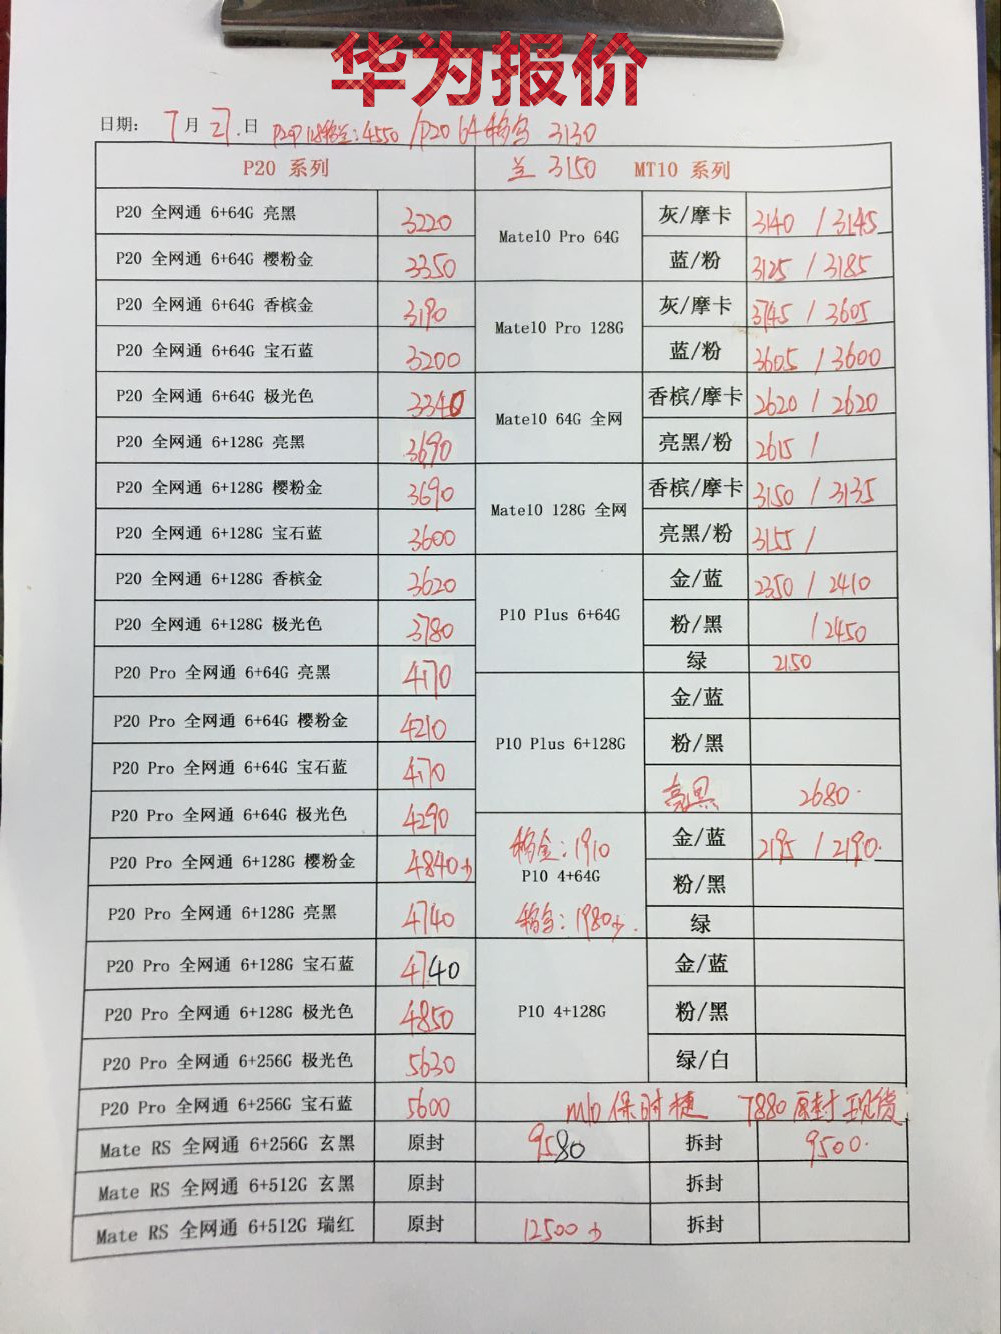 华为报价
日期： 7 月 27 日 P20P 128 : 4550 / P20 64 3130
P20 系列 兰 3150 MT10 系列
P20 全网通 6+64G 亮黑 3220
P20 全网通 6+64G 樱粉金 3350
P20 全网通 6+64G 香槟金 3190
P20 全网通 6+64G 宝石蓝 3200
P20 全网通 6+64G 极光色 3340
P20 全网通 6+128G 亮黑 3690
P20 全网通 6+128G 樱粉金 3690
P20 全网通 6+128G 宝石蓝 3600
P20 全网通 6+128G 香槟金 3620
P20 全网通 6+128G 极光色 3780
P20 Pro 全网通 6+64G 亮黑 4170
P20 Pro 全网通 6+64G 樱粉金 4210
P20 Pro 全网通 6+64G 宝石蓝 4170
P20 Pro 全网通 6+64G 极光色 4290
P20 Pro 全网通 6+128G 樱粉金 4840少
P20 Pro 全网通 6+128G 亮黑 4740
P20 Pro 全网通 6+128G 宝石蓝 4740
P20 Pro 全网通 6+128G 极光色 4850
P20 Pro 全网通 6+256G 极光色 5630
P20 Pro 全网通 6+256G 宝石蓝 5600
Mate10 Pro 64G
灰/摩卡 3140 / 3145
蓝/粉 3125 / 3185
Mate10 Pro 128G
灰/摩卡 3745 / 3605
蓝/粉 3605 / 3600
Mate10 64G 全网
香槟/摩卡 2620 / 2620
亮黑/粉 2615 /
Mate10 128G 全网
香槟/摩卡 3150 / 3135
亮黑/粉 3155 /
P10 Plus 6+64G
金/蓝 2350 / 2410
粉/黑 / 2450
绿 2150
P10 Plus 6+128G
金/蓝
粉/黑
亮黑 2680
移金：1910
P10 4+64G
1980少
金/蓝 2195 / 2190
粉/黑
绿
P10 4+128G
金/蓝
粉/黑
绿/白
M10 保时捷 7880 原封 现货
Mate RS 全网通 6+256G 玄黑 原封 9580 拆封 9500
Mate RS 全网通 6+512G 玄黑 原封 拆封
Mate RS 全网通 6+512G 瑞红 原封 12500 少 拆封